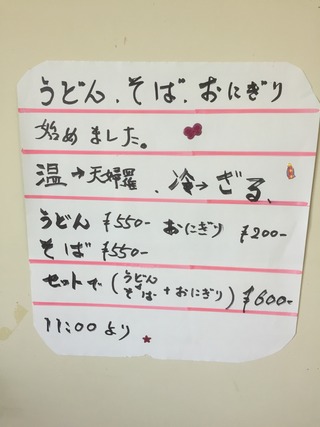 うどん、そば、おにぎり
始めました。
温→天婦羅、冷→ざる、
うどん ¥550- おにぎり ¥200-
そば ¥550-
セットで(うどん そば+おにぎり)¥600-
11:00より